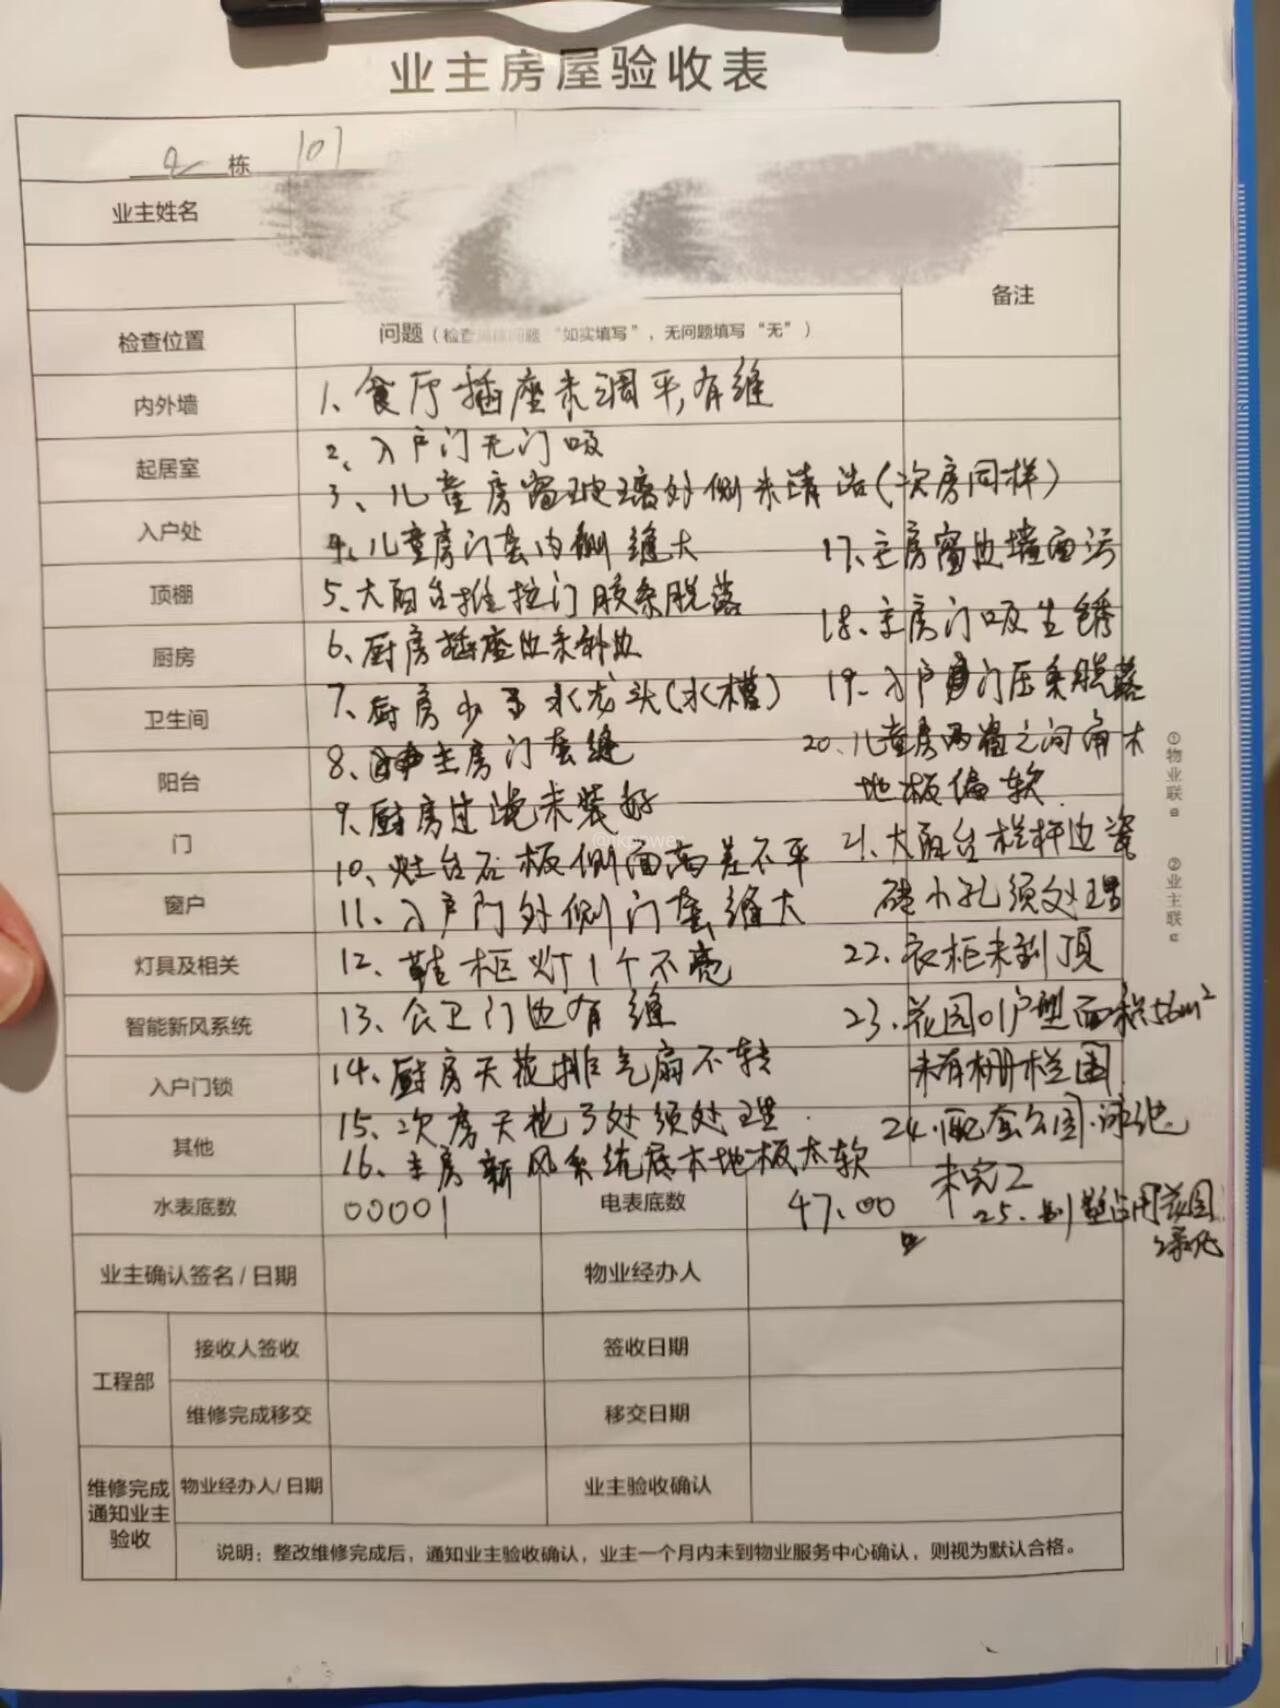 业主房屋验收表
2 栋 101
业主姓名
备注
检查位置
问题（检查 问题 “如实填写”，无问题填写 “无”）
内外墙
1、食厅插座未调平,有缝
起居室
2、入户门无门吸
3、儿童房窗玻璃外侧未清洁(次房同样)
入户处
4、儿童房门套内侧缝大
17、主房窗边墙面污
顶棚
5、大阳台推拉门胶条脱落
18、主房门吸生锈
厨房
6、厨房插座边未补边
卫生间
7、厨房少了水龙头(水槽)
19、入户门压条脱落
阳台
8、主房门套缝
20、儿童房两墙之间角木
地板偏软
9、厨房过 未装好
门
10、灶台石板侧面高差不平
21、大阳台栏杆边瓷
窗户
11、入户门外侧门套缝大
砖小孔须处理
灯具及相关
12、鞋柜灯1个不亮
22、衣柜未到顶
智能新风系统
13、公卫门边有缝
23、花园01户型面积56m²
入户门锁
14、厨房天花排气扇不转
未有栅栏围
其他
15、次房天花3处须处理
24、配套公园、泳池
未完工
16、主房新风系统底木地板太软
水表底数
00001
电表底数
47.00
25、别墅占用花园
绿化
业主确认签名 / 日期
物业经办人
工程部
接收人签收
签收日期
维修完成移交
移交日期
维修完成
通知业主
验收
物业经办人/ 日期
业主验收确认
说明：整改维修完成后，通知业主验收确认，业主一个月内未到物业服务中心确认，则视为默认合格。
①物业联
②业主联